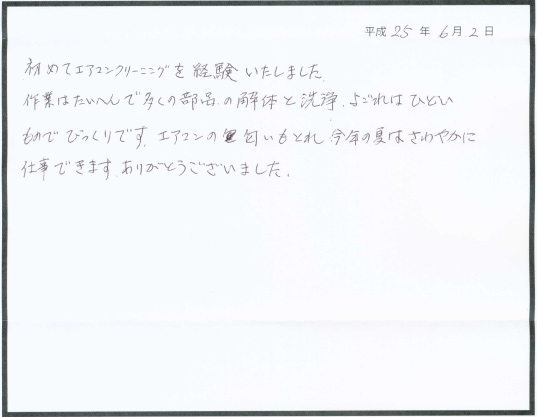 平成 25 年 6 月 2 日
初めてエアコンクリーニングを経験いたしました.
作業はたいへんで多くの部品の解体と洗浄、よごれはひどい
ものでびっくりです. エアコンの匂いもとれ 今年の夏はさわやかに
仕事できます. ありがとうございました.